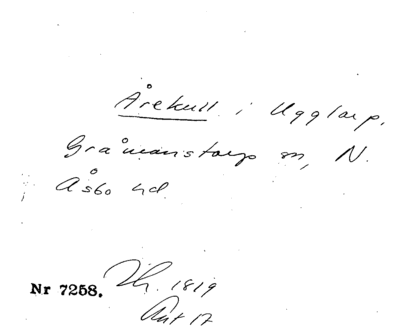 Årekull i Ugglarp,
Gråmanstorp sn, N.
Åsbo hd
Nr 7258. Th. 1819
Akt 17